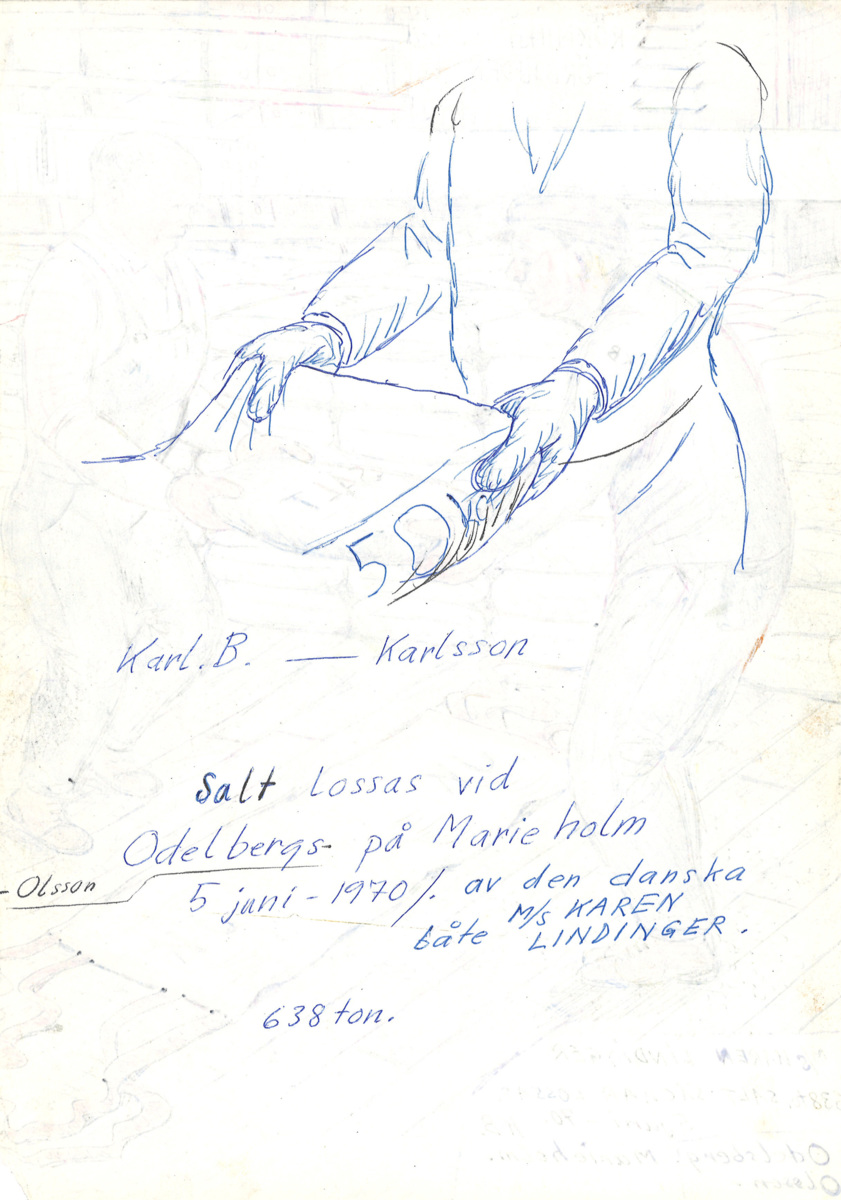 50 kg
Karl. B. — Karlsson
Salt lossas vid
Odelbergs- på Marieholm
- Olsson
5 juni - 1970/. av den danska
båte M/S KAREN
LINDINGER.
638 ton.